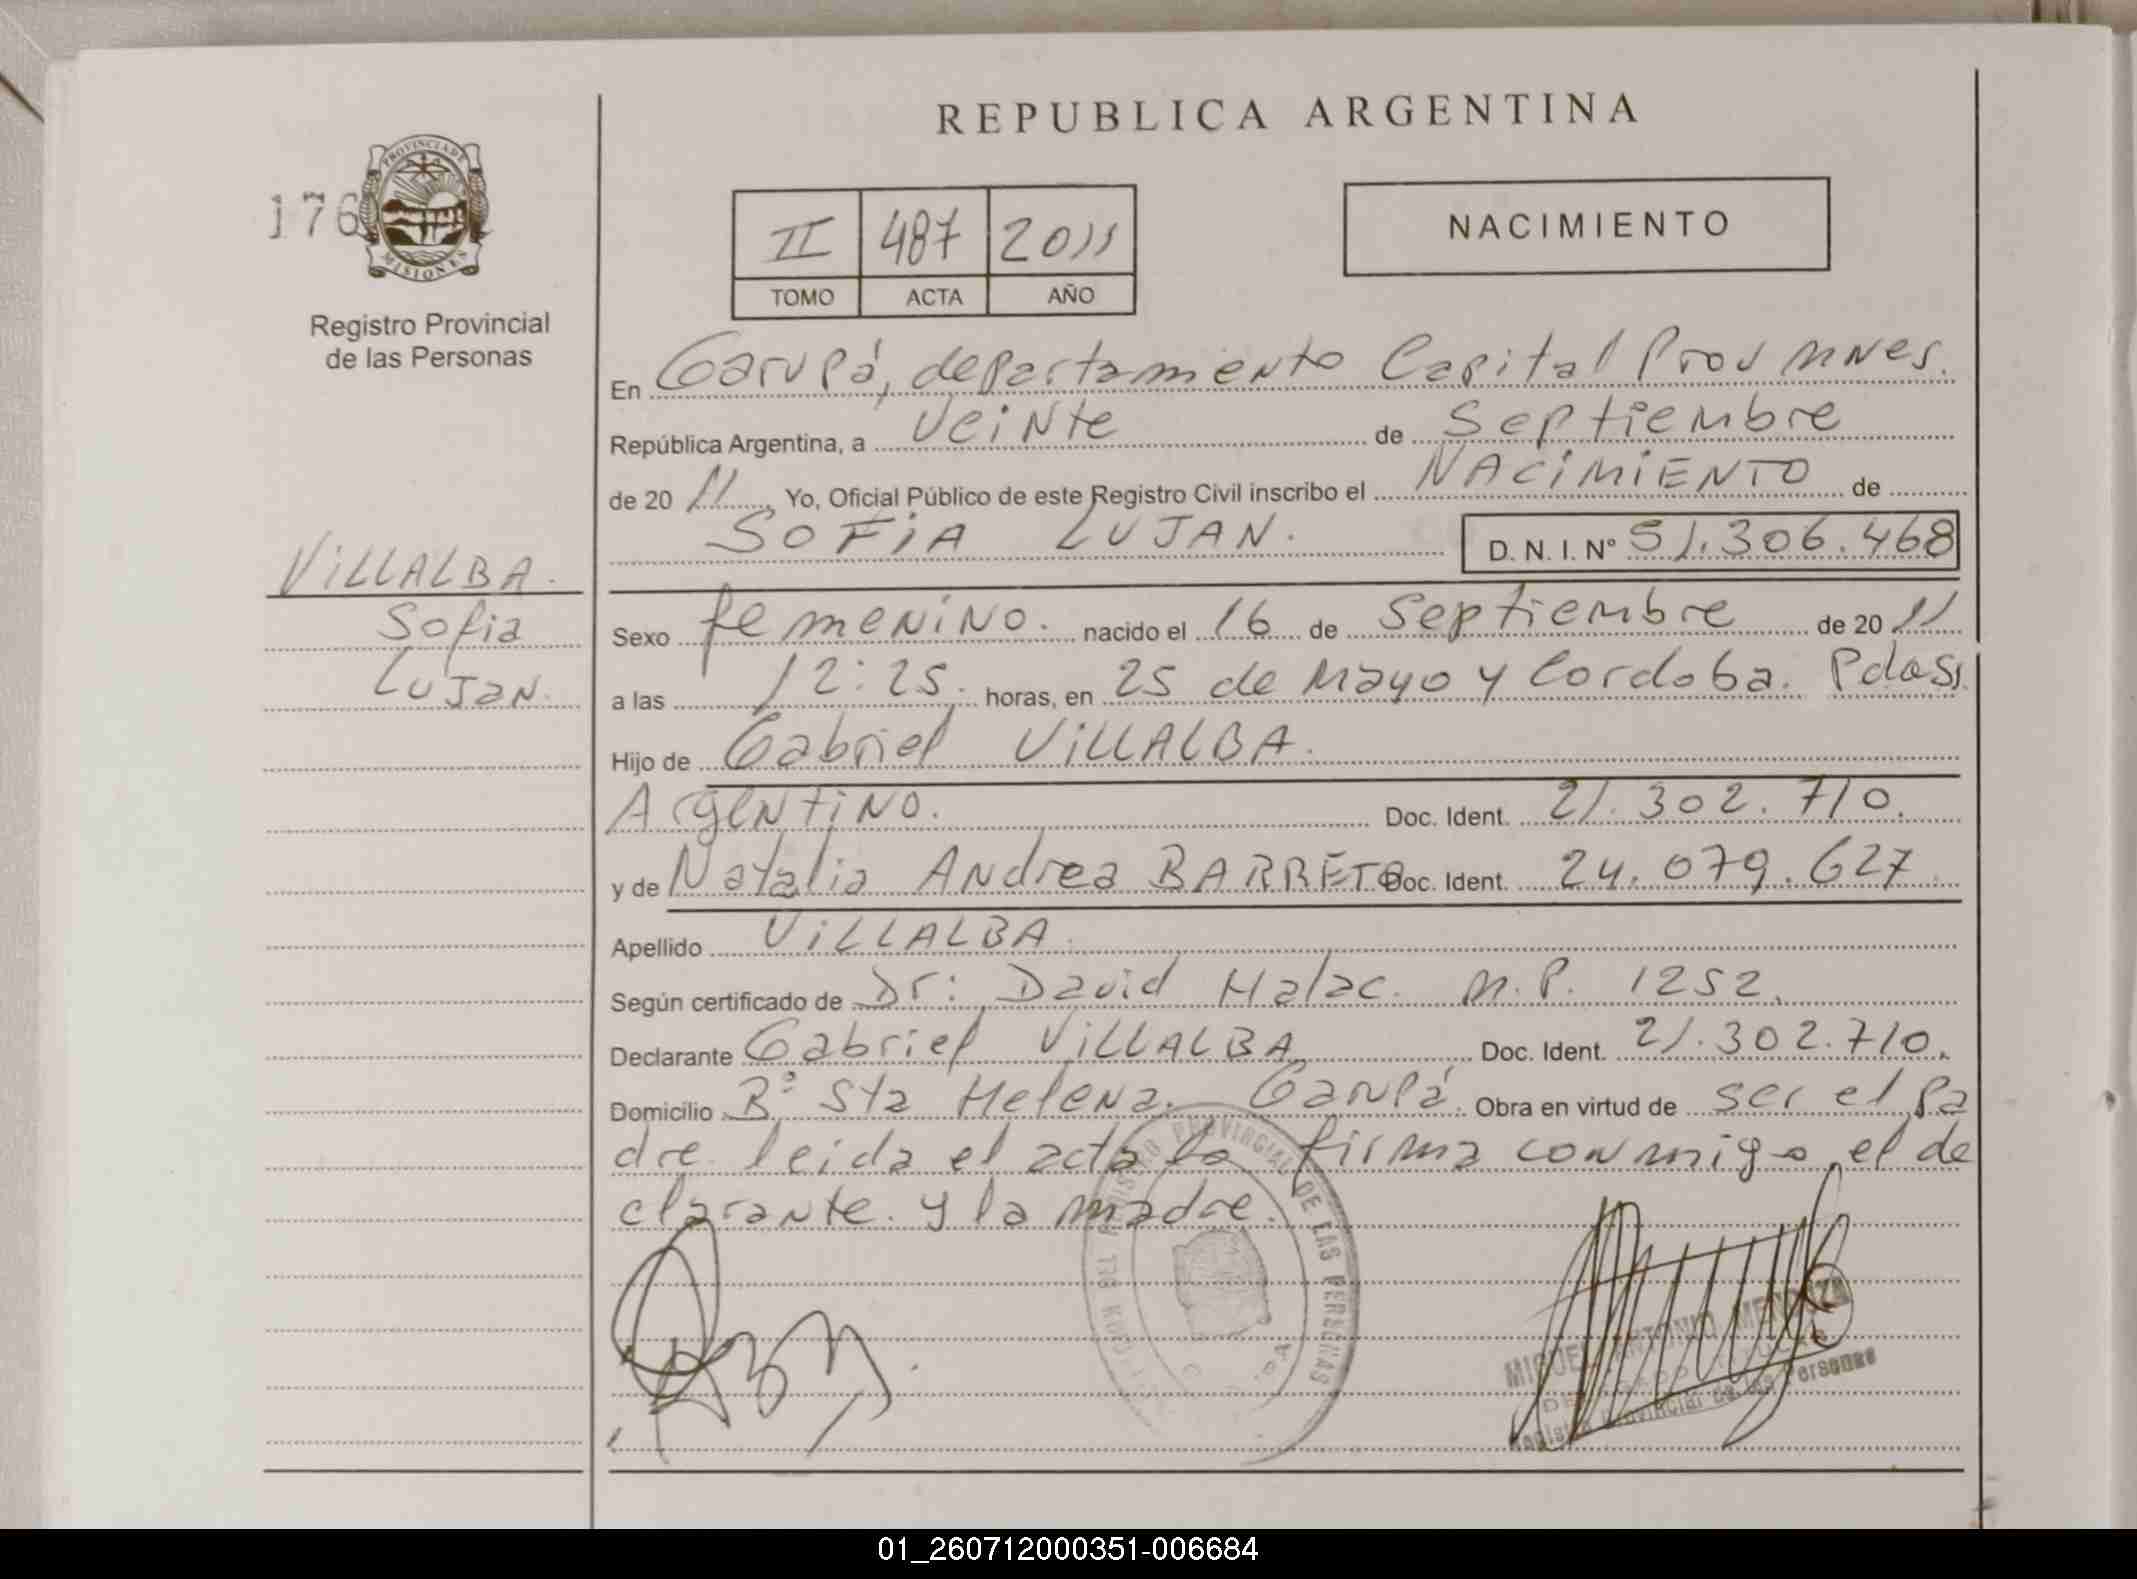 REPUBLICA ARGENTINA
176
PROVINCIA DE
MISIONES
Registro Provincial
de las Personas
II 487 2011
TOMO ACTA AÑO
NACIMIENTO
En Garupá, departamento Capital Prov Mnes.
República Argentina, a Veinte de Septiembre
de 20 11, Yo, Oficial Público de este Registro Civil inscribo el NACIMIENTO de
SOFIA LUJAN. D. N. I. N° 51.306.468
VILLALBA.
Sofia
Lujan.
Sexo femenino. nacido el 16 de Septiembre de 20 11
a las 12:25. horas, en 25 de Mayo y Cordoba. Pdas.
Hijo de Gabriel VILLALBA.
Argentino. Doc. Ident. 21.302.710.
y de Natalia Andrea BARRETO Doc. Ident. 24.079.627
Apellido VILLALBA.
Según certificado de Dr: David Halac. M.P. 1252.
Declarante Gabriel VILLALBA, Doc. Ident. 21.302.710.
Domicilio B° Sta Helena. Garupá. Obra en virtud de ser el pa
dre leida el acta la firma conmigo, el de
clarante y la madre.
REGISTRO PROVINCIAL DE LAS PERSONAS
MIGUEL ANTONIO MENDOZA
Registro Provincial de las Personas
01_260712000351-006684